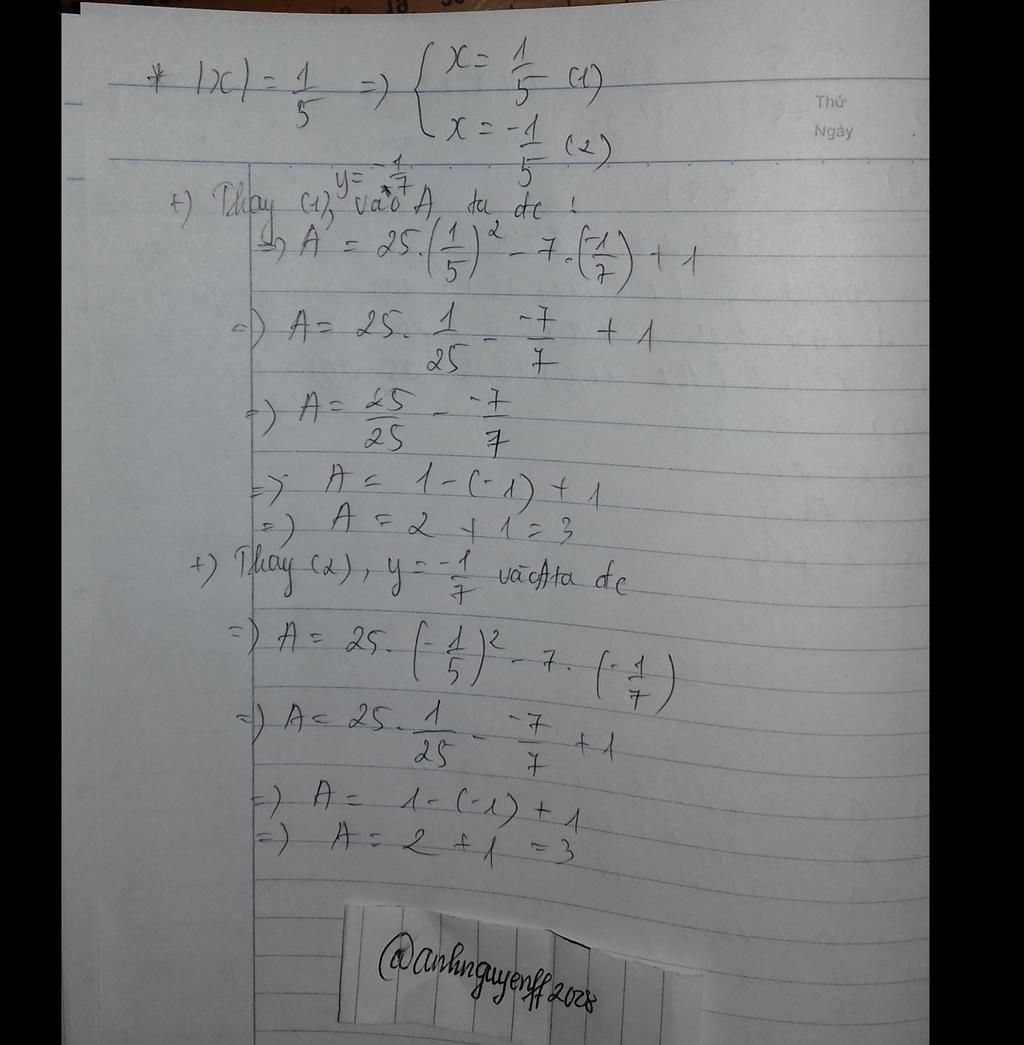 * |x| = 1/5 => { x = 1/5 (1)
x = -1/5 (2)
Thứ
Ngày
y = -1/7
+) Thay (1), vào A ta đc :
=> A = 25.(1/5)² - 7.(-1/7) + 1
=) A = 25. 1/25 - -7/7 + 1
=) A = 25/25 - -7/7
=> A = 1-(-1) + 1
=) A = 2 + 1 = 3
+) Thay (2), y = -1/7 vào A ta đc
=) A = 25. (-1/5)² - 7. (-1/7)
=) A = 25. 1/25 - -7/7 + 1
=) A = 1-(-1) + 1
=) A = 2 + 1 = 3
@anhnguyenff2028